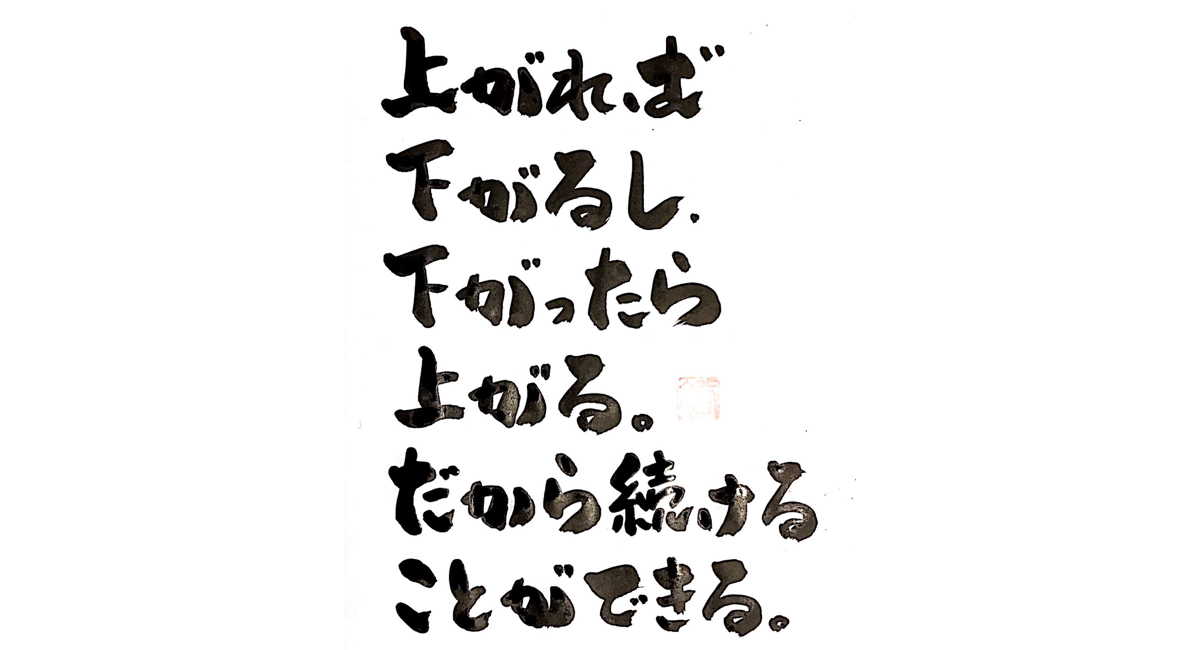 上がれば
下がるし、
下がったら
上がる。
だから続ける
ことができる。